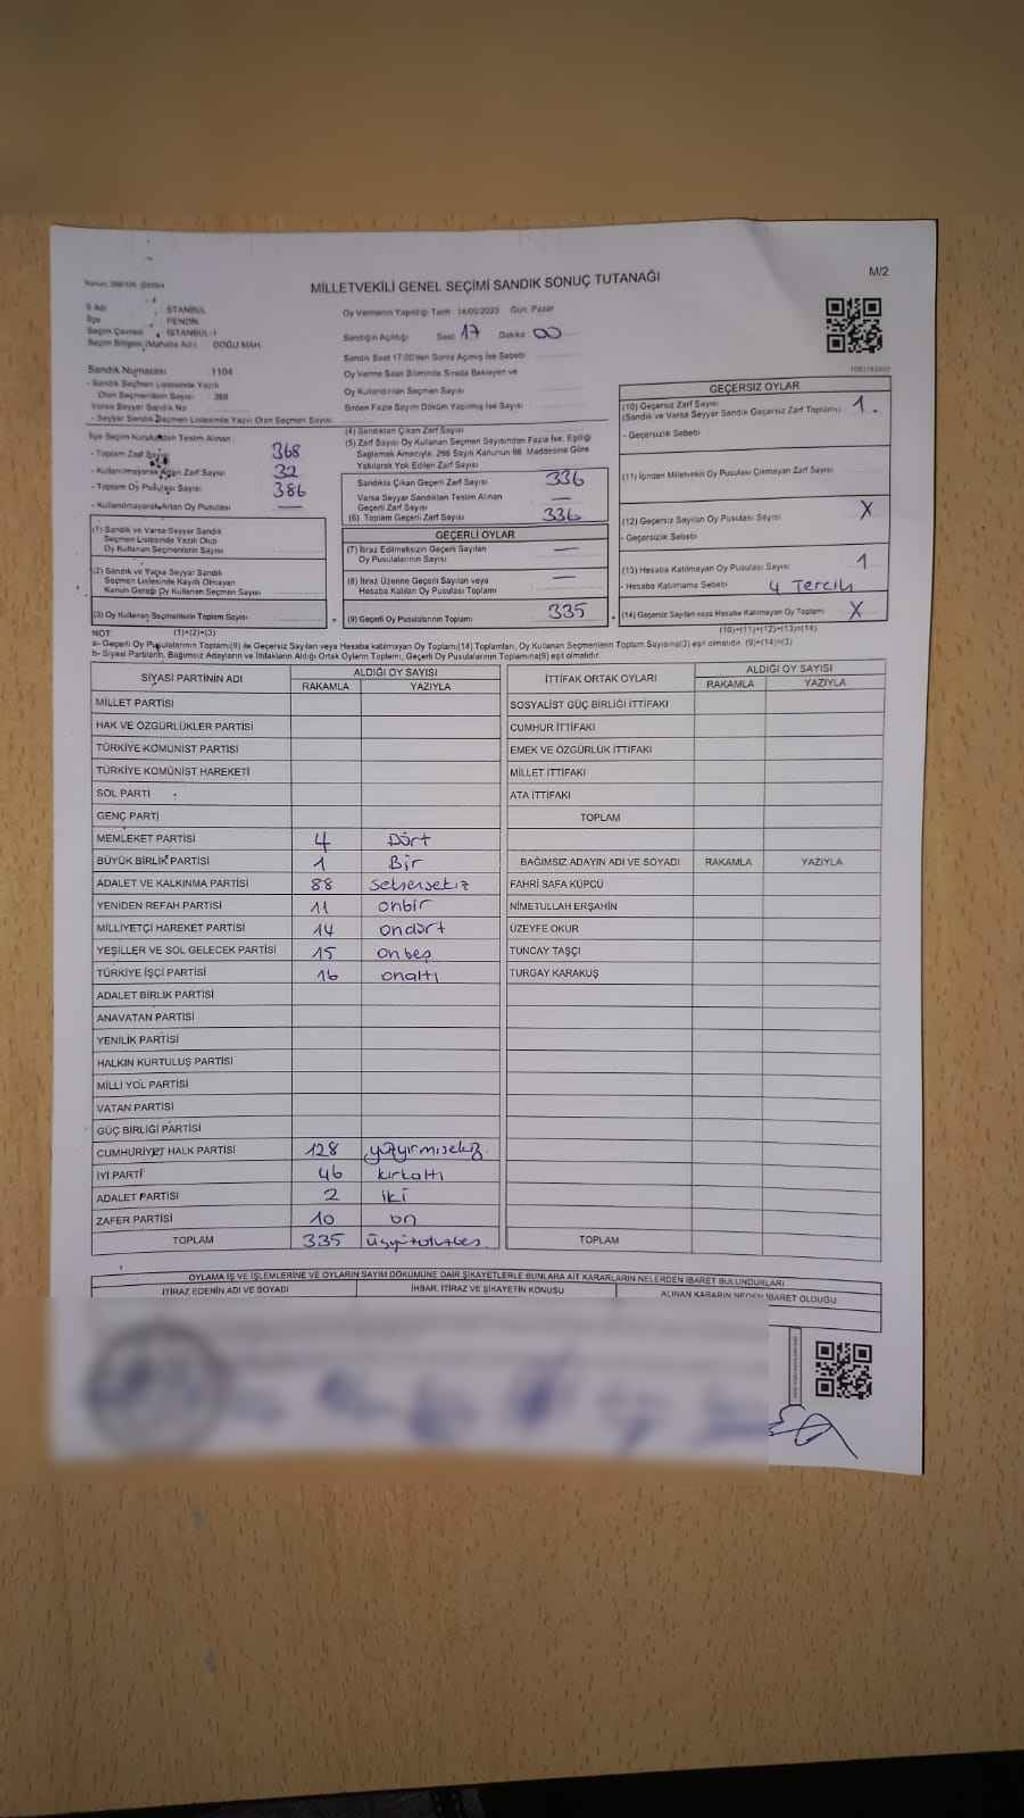 MİLLETVEKİLİ GENEL SEÇİMİ SANDIK SONUÇ TUTANAĞI
M/2
İSTANBUL
PENDİK
İSTANBUL-1
DOĞU MAH.
Sandık Numarası 1104
Oy Vermenin Yapıldığı Tarih 14/05/2023 Gün: Pazar
Sandığın Açıldığı Saat 17 Dakika 00
Sandık Saat 17:00'den Sonra Açılmış İse Sebebi
Oy Verme Saati Bitiminde Sırada Bekleyen ve
Oy Kullandırılan Seçmen Sayısı
Birden Fazla Sayım Döküm Yapılmış İse Sayısı
- Sandık Seçmen Listesinde Yazılı
Olan Seçmenlerin Sayısı 368
Varsa Seyyar Sandık No
- Seyyar Sandık Seçmen Listesinde Yazılı Olan Seçmen Sayısı
İlçe Seçim Kurulundan Teslim Alınan
- Toplam Zarf Sayısı 368
- Kullanılmayarak Artan Zarf Sayısı 32
- Toplam Oy Pusulası Sayısı 386
- Kullanılmayarak Artan Oy Pusulası —
(1) Sandık ve Varsa Seyyar Sandık
Seçmen Listesinde Yazılı Olup
Oy Kullanan Seçmenlerin Sayısı
(2) Sandık ve Varsa Seyyar Sandık
Seçmen Listesinde Kayıtlı Olmayan
Kanun Gereği Oy Kullanan Seçmen Sayısı
(3) Oy Kullanan Seçmenlerin Toplam Sayısı
(1)+(2)=(3)
(4) Sandıktan Çıkan Zarf Sayısı
(5) Zarf Sayısı Oy Kullanan Seçmen Sayısından Fazla İse, Eşitliği
Sağlamak Amacıyla, 298 Sayılı Kanunun 98. Maddesine Göre
Yakılarak Yok Edilen Zarf Sayısı
Sandıkta Çıkan Geçerli Zarf Sayısı 336
Varsa Seyyar Sandıktan Teslim Alınan
Geçerli Zarf Sayısı —
(6) Toplam Geçerli Zarf Sayısı 336
GEÇERLİ OYLAR
(7) İtiraz Edilmeksizin Geçerli Sayılan
Oy Pusulalarının Sayısı —
(8) İtiraz Üzerine Geçerli Sayılan veya
Hesaba Katılan Oy Pusulası Toplamı —
(9) Geçerli Oy Pusulalarının Toplamı 335
GEÇERSİZ OYLAR
(10) Geçersiz Zarf Sayısı
(Sandık ve Varsa Seyyar Sandık Geçersiz Zarf Toplamı) 1.
- Geçersizlik Sebebi
(11) İçinden Milletvekili Oy Pusulası Çıkmayan Zarf Sayısı
(12) Geçersiz Sayılan Oy Pusulası Sayısı X
- Geçersizlik Sebebi
(13) Hesaba Katılmayan Oy Pusulası Sayısı 1
- Hesaba Katılmama Sebebi 4 Tercih
(14) Geçersiz Sayılan veya Hesaba Katılmayan Oy Toplamı X
(10)+(11)+(12)+(13)=(14)
NOT
a- Geçerli Oy Pusulalarının Toplamı(9) ile Geçersiz Sayılan veya Hesaba katılmayan Oy Toplamı(14) Toplamları, Oy Kullanan Seçmenlerin Toplam Sayısına(3) eşit olmalıdır. (9)+(14)=(3)
b- Siyasi Partilerin, Bağımsız Adayların ve İttifakların Aldığı Ortak Oyların Toplamı, Geçerli Oy Pusulalarının Toplamına(9) eşit olmalıdır.
SİYASİ PARTİNİN ADI ALDIĞI OY SAYISI
RAKAMLA YAZIYLA
MİLLET PARTİSİ
HAK VE ÖZGÜRLÜKLER PARTİSİ
TÜRKİYE KOMÜNİST PARTİSİ
TÜRKİYE KOMÜNİST HAREKETİ
SOL PARTİ
GENÇ PARTİ
MEMLEKET PARTİSİ 4 Dört
BÜYÜK BİRLİK PARTİSİ 1 Bir
ADALET VE KALKINMA PARTİSİ 88 seksensekiz
YENİDEN REFAH PARTİSİ 11 onbir
MİLLİYETÇİ HAREKET PARTİSİ 14 ondört
YEŞİLLER VE SOL GELECEK PARTİSİ 15 onbeş
TÜRKİYE İŞÇİ PARTİSİ 16 onaltı
ADALET BİRLİK PARTİSİ
ANAVATAN PARTİSİ
YENİLİK PARTİSİ
HALKIN KURTULUŞ PARTİSİ
MİLLİ YOL PARTİSİ
VATAN PARTİSİ
GÜÇ BİRLİĞİ PARTİSİ
CUMHURİYET HALK PARTİSİ 128 yüzyirmisekiz
İYİ PARTİ 46 kırkaltı
ADALET PARTİSİ 2 iki
ZAFER PARTİSİ 10 on
TOPLAM 335 üçyüzotuzbeş
İTTİFAK ORTAK OYLARI ALDIĞI OY SAYISI
RAKAMLA YAZIYLA
SOSYALİST GÜÇ BİRLİĞİ İTTİFAKI
CUMHUR İTTİFAKI
EMEK VE ÖZGÜRLÜK İTTİFAKI
MİLLET İTTİFAKI
ATA İTTİFAKI
TOPLAM
BAĞIMSIZ ADAYIN ADI VE SOYADI RAKAMLA YAZIYLA
FAHRİ SAFA KÜPCÜ
NİMETULLAH ERŞAHİN
ÜZEYFE OKUR
TUNCAY TAŞÇI
TURGAY KARAKUŞ
TOPLAM
OYLAMA İŞ VE İŞLEMLERİNE VE OYLARIN SAYIM DÖKÜMÜNE DAİR ŞİKAYETLERLE BUNLARA AİT KARARLARIN NELERDEN İBARET BULUNDUKLARI
İTİRAZ EDENİN ADI VE SOYADI İHBAR, İTİRAZ VE ŞİKAYETİN KONUSU ALINAN KARARIN NEDEN İBARET OLDUĞU